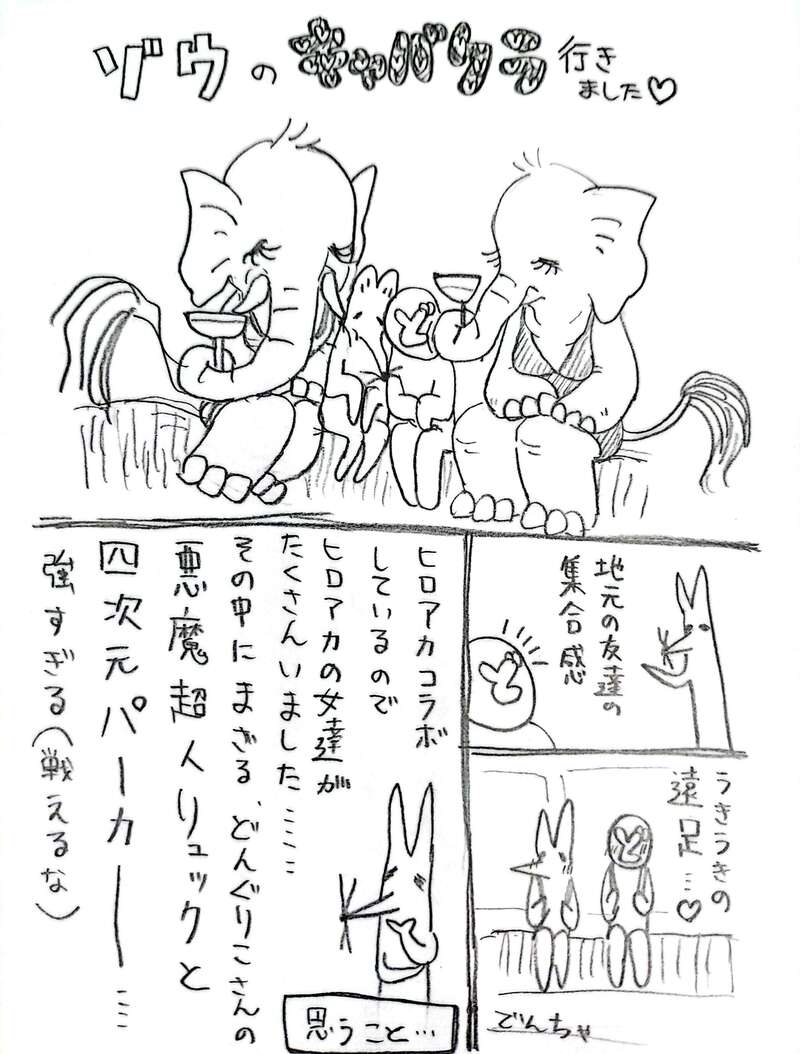 ゾウのキャバクラ行き
ました♡
地元の友達の
集合感
うきうきの
遠足…♡
でんちゃ
ヒロアカコラボ
しているので
ヒロアカの女達が
たくさんいました……
その中にまざる、どんぐりこさんの
悪魔超人リュックと
四次元パーカー……
強すぎる(戦えるな)
思うこと…